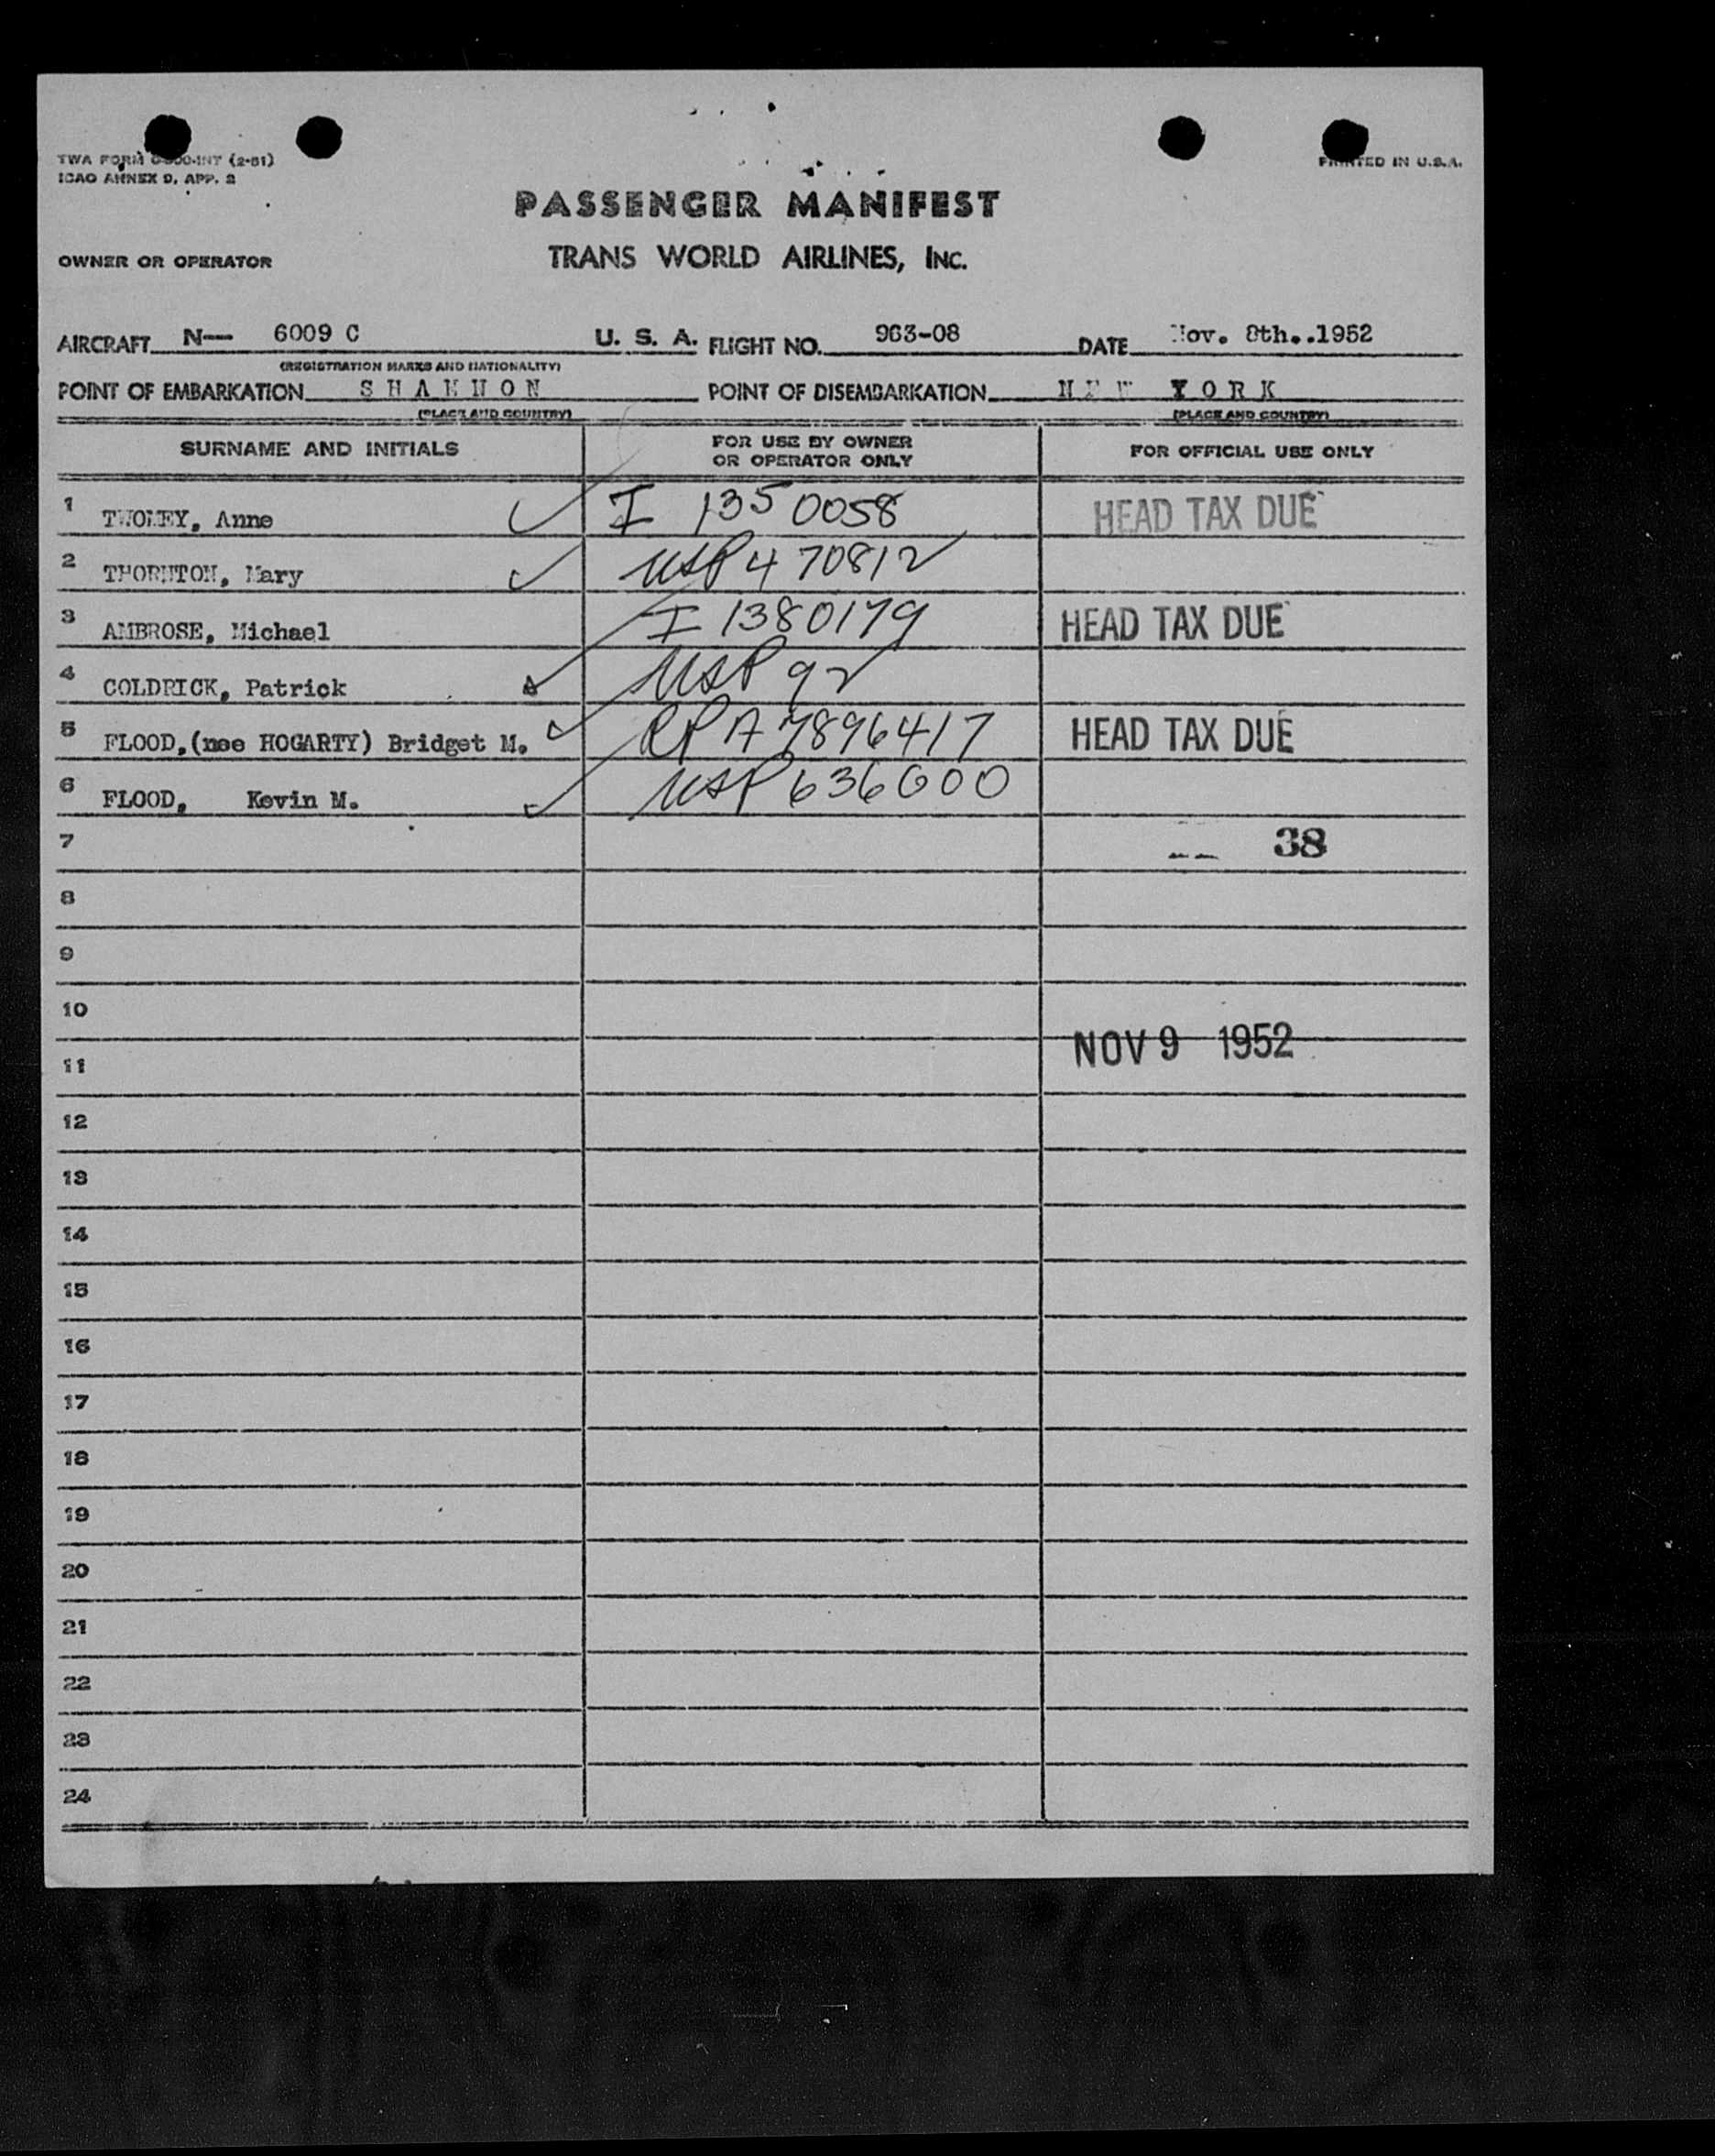 TWA FORM INT (2-51)
ICAO ANNEX 9, APP. 2
PRINTED IN U.S.A.
PASSENGER MANIFEST
OWNER OR OPERATOR TRANS WORLD AIRLINES, INC.
AIRCRAFT N— 6009 C U. S. A. FLIGHT NO. 963-08 DATE Nov. 8th..1952
(REGISTRATION MARKS AND NATIONALITY)
POINT OF EMBARKATION S H A N N O N POINT OF DISEMBARKATION N E W Y O R K
(PLACE AND COUNTRY) (PLACE AND COUNTRY)
SURNAME AND INITIALS FOR USE BY OWNER OR OPERATOR ONLY FOR OFFICIAL USE ONLY
1 TWOMEY, Anne I 1350058 HEAD TAX DUE
2 THORNTON, Mary USP 470812
3 AMBROSE, Michael I 1380179 HEAD TAX DUE
4 COLDRICK, Patrick USP 92
5 FLOOD,(nee HOGARTY) Bridget M. RP A7896417 HEAD TAX DUE
6 FLOOD, Kevin M. USP 636600
7 38
8
9
10
NOV 9 1952
11
12
13
14
15
16
17
18
19
20
21
22
23
24